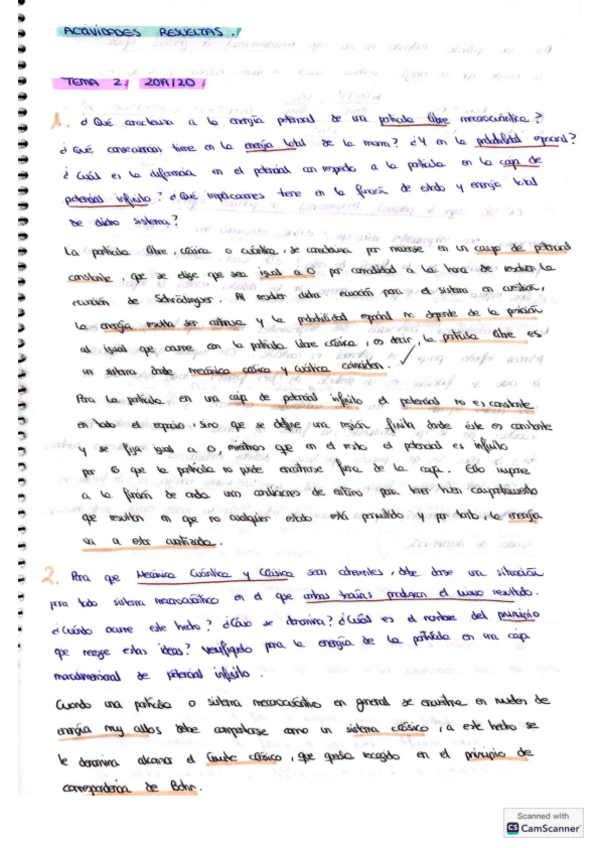 ACTIVIDADES RESUELTAS.
TEMA 2. 2019/20.
1. ¿Qué caracteriza a la energía potencial de una partícula libre mecanocuántica?
¿Qué consecuencias tiene en la energía total de la misma? ¿Y en la probabilidad espacial?
¿Cuál es la diferencia en el potencial con respecto a la partícula en la caja de
potencial infinito? ¿Qué implicaciones tiene en la función de estado y energía total
de dicho sistema?
La partícula libre, clásica o cuántica, se caracteriza por moverse en un campo de potencial
constante, que se elige que sea igual a 0 por comodidad a la hora de resolver la
ecuación de Schrödinguer. Al resolver dicha ecuación para el sistema en cuestión,
la energía resulta ser continua y la probabilidad espacial no depende de la posición
al igual que ocurre con la partícula libre clásica, es decir, la partícula libre es
un sistema donde mecánica clásica y cuántica coinciden.
Para la partícula en una caja de potencial infinito el potencial no es constante
en todo el espacio, sino que se define una región finita donde éste es constante
y se fija igual a 0, mientras que en el resto el potencial es infinito
por lo que la partícula no puede encontrarse fuera de la caja. Esto impone
a la función de onda unas condiciones de entorno para tener buen comportamiento
que resultan en que no cualquier estado está permitido y por tanto, la energía
va a estar cuantizada.
2. Para que Mecánica Cuántica y Clásica sean coherentes, debe darse una situación
para todo sistema mecanocuántico en el que ambas teorías produzcan el mismo resultado.
¿Cuándo ocurre este hecho? ¿Cómo se denomina? ¿Cuál es el nombre del principio
que recoge estas ideas? Verifíquelo para la energía de la partícula en una caja
monodimensional de potencial infinito.
Cuando una partícula o sistema mecanocuántico en general se encuentra en niveles de
energía muy altos debe comportarse como un sistema clásico, a este hecho se
le denomina alcanzar el límite clásico, que queda recogido en el principio de
correspondencia de Bohr.
Scanned with
CS CamScanner